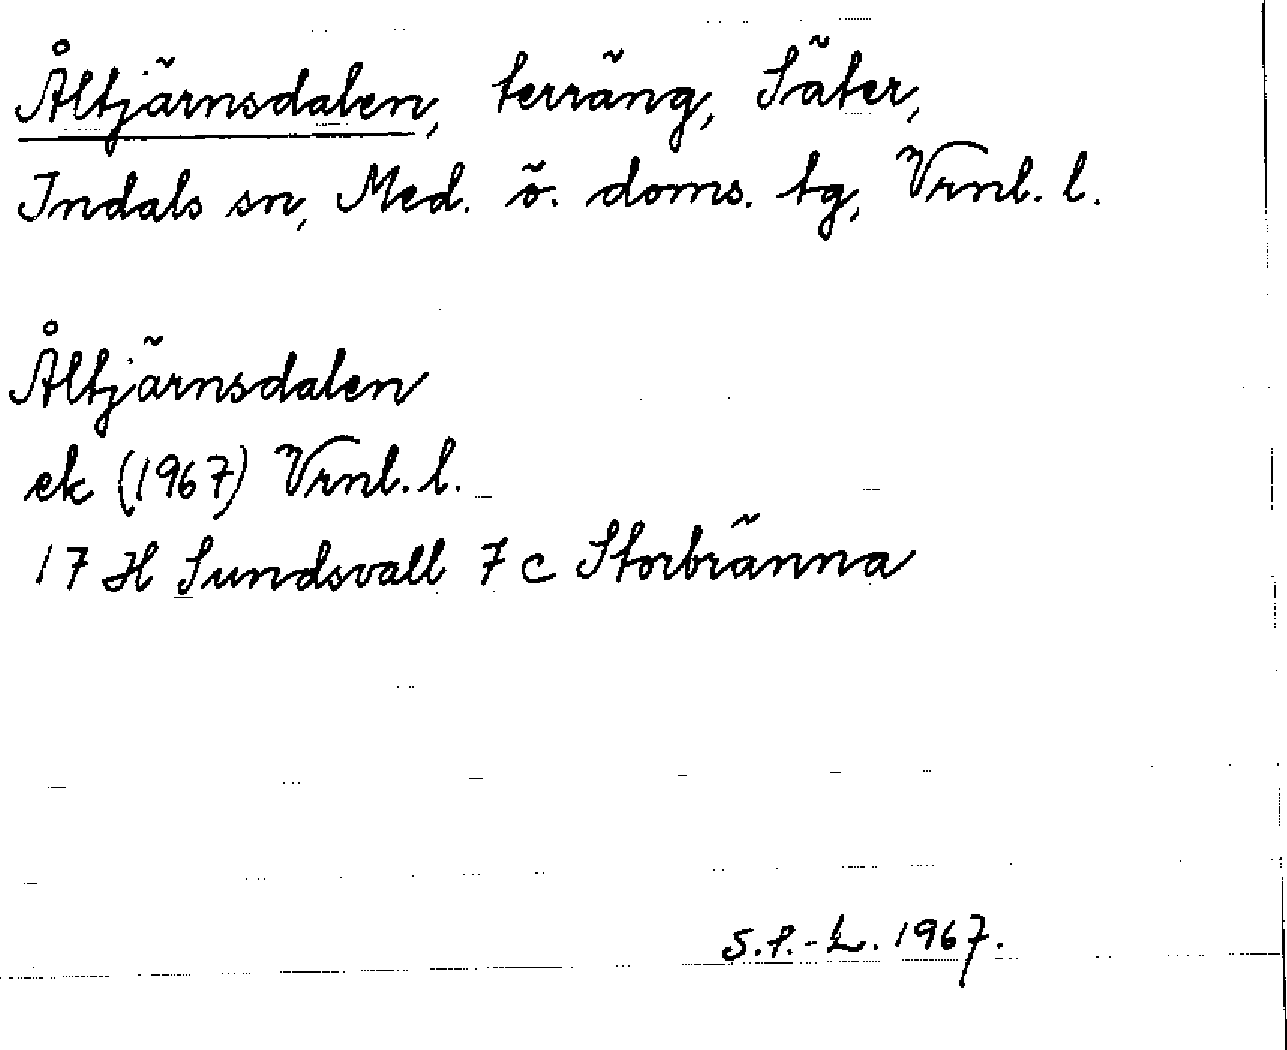 Åltjärnsdalen, terräng, Säter,
Indals sn, Med. ö. doms. tg, Vrnl. l.
Åltjärnsdalen
ek (1967) Vrnl. l.
17 H Sundsvall 7 c Storbränna
S.P.-L. 1967.